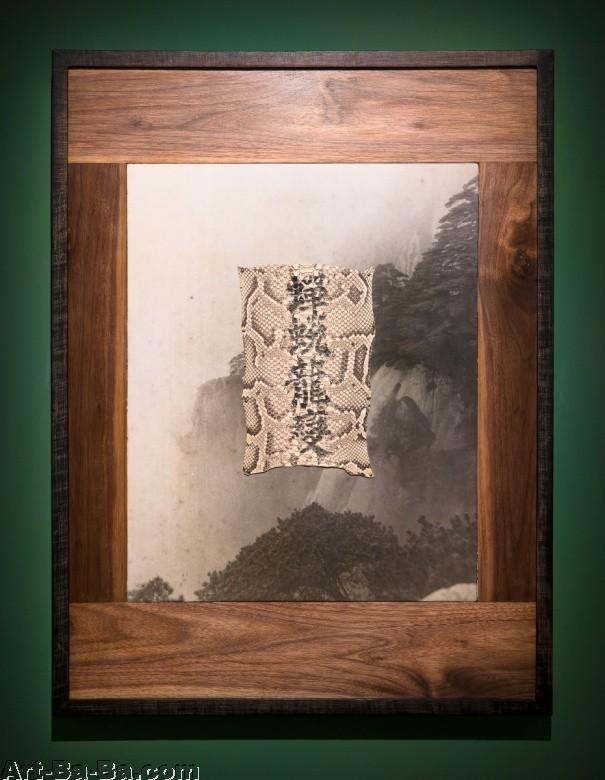 蟬蛻龍變
Art-Ba-Ba.com